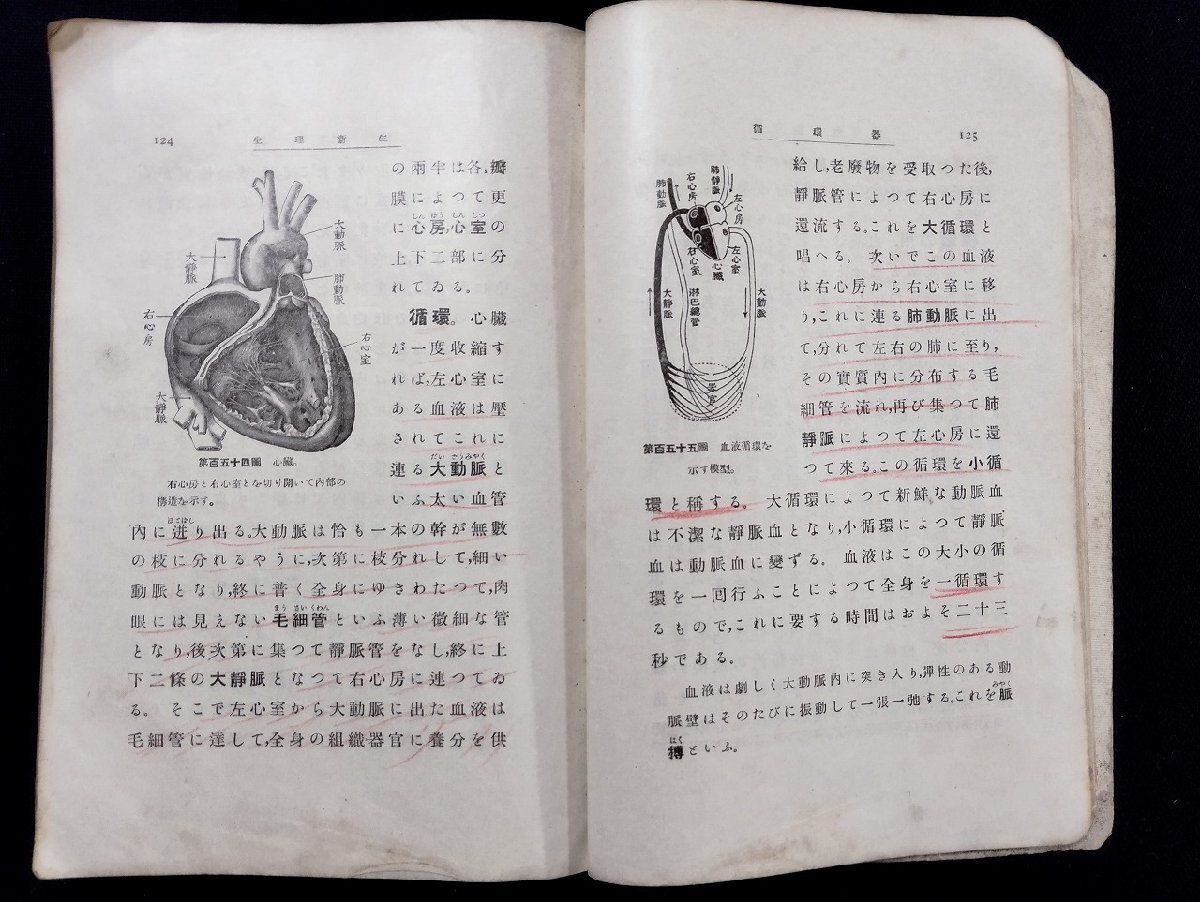 124
生理新
の兩半は各、瓣
膜によつて更
に心房、心室の
しんばう しんしつ
上下二部に分
れてゐる。
循環。心臟
が一度收縮す
れば、左心室に
ある血液は壓
されてこれに
連る大動脈と
だいどうみやく
いふ太い血管
大動脈
肺動脈
大靜脈
右心房
右心室
大靜脈
第百五十四圖 心臟。
右心房と右心室とを切り開いて內部の
構造を示す。
內に迸り出る。大動脈は恰も一本の幹が無數
ほとばし
の枝に分れるやうに、次第に枝分れして、細い
動脈となり、終に普く全身にゆきわたつて、肉
眼には見えない毛細管といふ薄い微細な管
まうさいくわん
となり、後次第に集つて靜脈管をなし、終に上
下二條の大靜脈となつて右心房に連つてゐ
る。そこで左心室から大動脈に出た血液は
毛細管に達して、全身の組織器官に養分を供
循環器
125
給し老廢物を受取つた後、
靜脈管によつて右心房に
還流する。これを大循環と
唱へる。次いでこの血液
は右心房から右心室に移
り、これに連る肺動脈に出
て、分れて左右の肺に至り、
その實質內に分布する毛
細管を流れ、再び集つて肺
靜脈によつて左心房に還
つて來る。この循環を小循
肺動脈
右心房
肺靜脈
左心房
右心室
心臟
左心室
大靜脈
淋巴總管
大動脈
器官
第百五十五圖 血液循環を
示す模型。
環と稱する。大循環によつて新鮮な動脈血
は不潔な靜脈血となり、小循環によつて靜脈
血は動脈血に變ずる。血液はこの大小の循
環を一囘行ふことによつて全身を一循環す
るもので、これに要する時間はおよそ二十三
秒である。
血液は劇しく大動脈內に突き入り、彈性のある動
脈壁はそのたびに振動して一張一弛する。これを脈
みやく
搏といふ。
はく